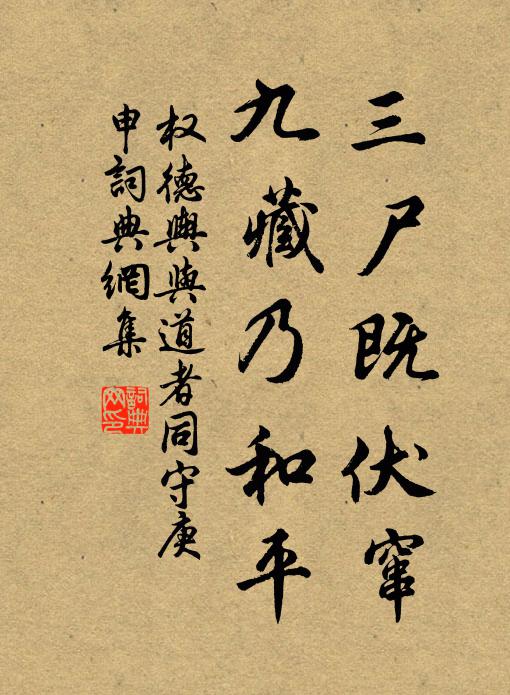 三尸既伏竄
九藏乃和平
权德輿與道者同守庚
申詞典網集
詞典
网印